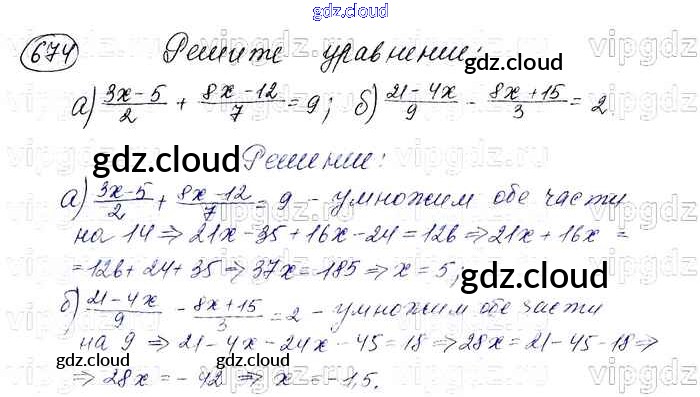 gdz.cloud
674 Решите уравнение:
а) (3x-5)/2 + (8x-12)/7 = 9; б) (21-4x)/9 - (8x+15)/3 = 2
gdz.cloud
gdz.cloud
Решение:
а) (3x-5)/2 + (8x-12)/7 = 9 - умножим обе части
на 14 ⇒ 21x-35+16x-24=126 ⇒ 21x+16x =
=126+24+35 ⇒ 37x=185 ⇒ x=5;
gdz.cloud
б) (21-4x)/9 - (8x+15)/3 = 2 - умножим обе части
на 9 ⇒ 21-4x-24x-45=18 ⇒ 28x=21-45-18 ⇒
gdz.cloud gdz.cloud
⇒ 28x=-42 ⇒ x=-1,5.